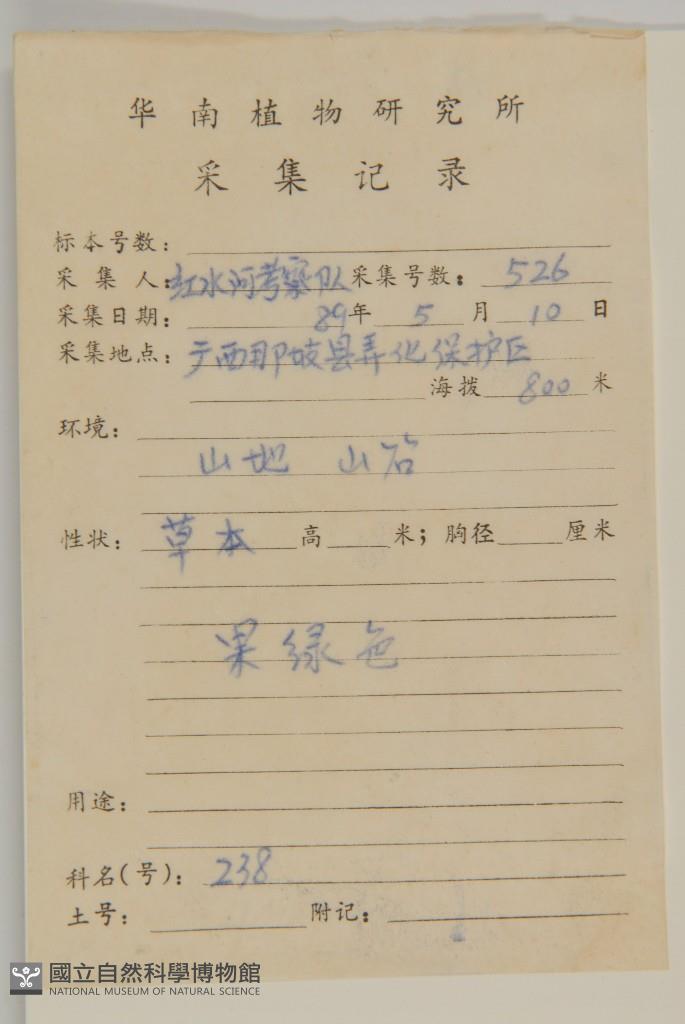 华南植物研究所
采集记录
标本号数：
采集人：红水河考察队 采集号数：526
采集日期：89年5月10日
采集地点：广西那坡县弄化保护区
海拨800米
环境：
山地 山谷
性状：草本 高 米；胸径 厘米
果绿色
用途：
科名(号)：238
土号： 附记：
國立自然科學博物館
NATIONAL MUSEUM OF NATURAL SCIENCE